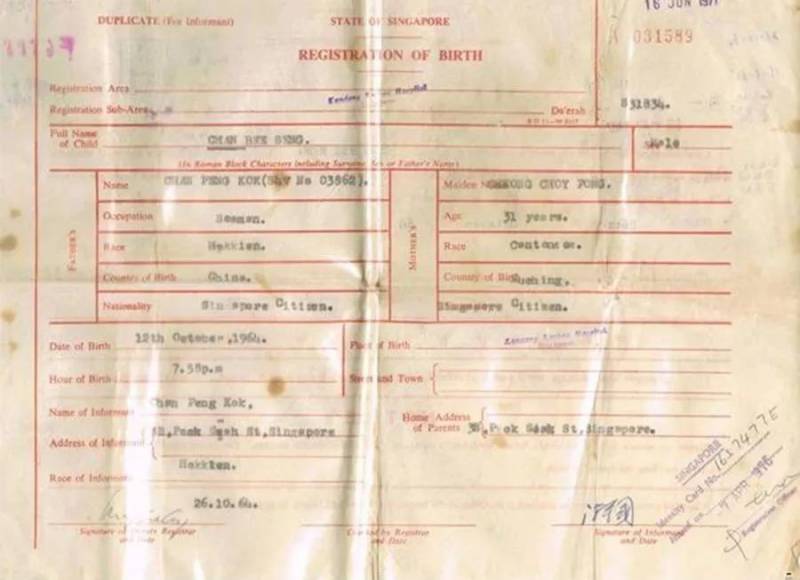 16 JUN 1971
DUPLICATE (For Informant)
STATE OF SINGAPORE
A 031589
REGISTRATION OF BIRTH
Registration Area
Kandang Kerbau Hospital
Registration Sub-Area
Da'erah
S31834.
Full Name of Child
CHAN BEE SENG.
Male
(In Roman Block Characters including Surname, Sex or Father's Name)
FATHER'S
Name
CHAN PENG KOK( No 03862).
Occupation
Seaman.
Race
Hokkien.
Country of Birth
China.
Nationality
Singapore Citizen.
MOTHER'S
Maiden CHOY FONG.
Age
31 years.
Race
Cantonese.
Country of Birth
Kuching.
Singapore Citizen.
Date of Birth
12th October,1964.
Place of Birth
Kandang Kerbau Hospital
Hour of Birth
7.58p.m
Street and Town
Name of Informant
Chan Peng Kok,
Address of Informant
Peck Seah St,Singapore
Home Address of Parents
Peck Seah St,Singapore.
Race of Informant
Hokkien.
26.10.64.
Signature of Registrar and Date
Checked by Registrar and Date
Signature of Informant and Date
SINGAPORE
Identity Card No.
Issued on
Registration Officer